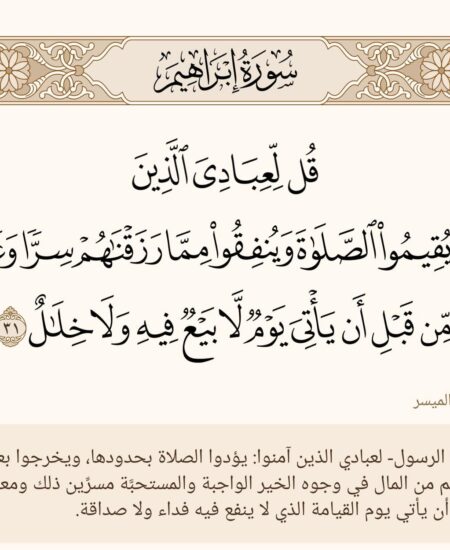 سُورَةُ إِبۡرَاهِيمَ
قُل لِّعِبَادِيَ ٱلَّذِينَ
يُقِيمُواْ ٱلصَّلَوٰةَ وَيُنفِقُواْ مِمَّا رَزَقۡنَٰهُمۡ سِرّٗا
مِّن قَبۡلِ أَن يَأۡتِيَ يَوۡمٞ لَّا بَيۡعٞ فِيهِ وَلَا خِلَٰلٌ ٣١
الميسر
الرسول- لعبادي الذين آمنوا: يؤدوا الصلاة بحدودها، ويخرجوا
من المال في وجوه الخير الواجبة والمستحبَّة مسرِّين ذلك
أن يأتي يوم القيامة الذي لا ينفع فيه فداء ولا صداقة.